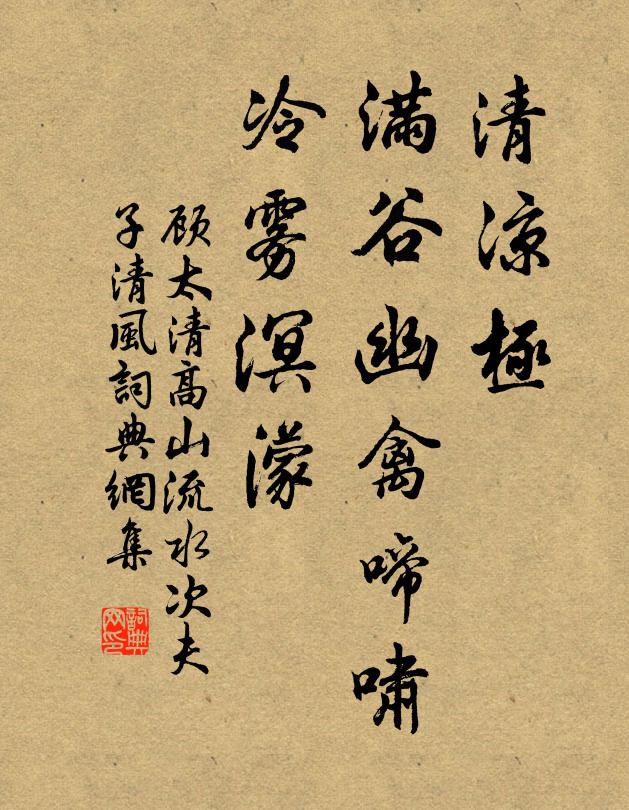 清凉極
满谷幽禽啼嘯
冷雾溟濛
顾太清高山流水次夫
子清風詞典網集
詞典网印